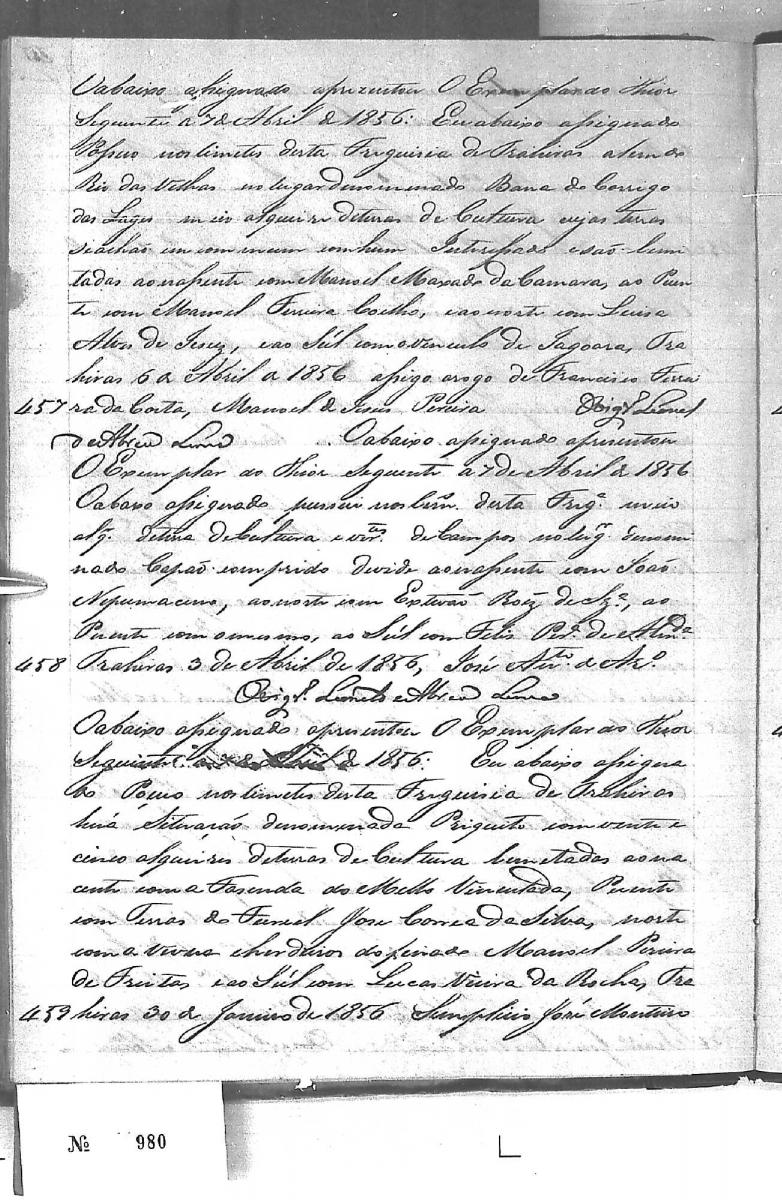 O abaixo assignado aprezentou O Exemplar do Thior
Seguente a 7 de Abril de 1856: Eu abaixo assignado
Possuo nos limetes desta Freguisia de Trahiras alem do
Rio das Velhas no lugar denominado Barra do Corrigo
das Lages meio alqueire de terras de Cultura cujas terras
se achão em commum com hum Interessado e são lemi
tadas ao nassente com Manoel Maxado da Camara, ao Puen
te com Manoel Ferreira Coelho, e ao norte com Luisa
Alves de Jesus, e ao Súl com o vinculo de Jagoara, Tra
hiras 6 de Abril de 1856 assigo arogo de Francisco Ferra
457 ra da Costa, Manoel de Jesus Pereira Orig.l Lionel
de Abreu Lima O abaixo assignado apresentou
O Exemplar do Thior Seguente a 7 de Abril de 1856
O abaxo assignado possui nos lim. desta Frig.a meio
alq. de terra de Cultura e de Campos no lug.r denomi
nado Capão comprido devide ao nassente com João
Nepumaceno, ao norte com Estevão Roiz de Sz.a, ao
Puente com o mesmo, ao Súl com Felis Per.a de Alm.da
458 Trahiras 3 de Abril de 1856, José de
Orig.l Lionel de Abreu Lima
O abaixo assignado apresentou O Exemplar do Thior
Seguinte a 7 de Abril de 1856: Eu abaixo assigna
do Possuo nos limetes desta Freguisia de Trahiras
huá Situacão denominada Piriquito com vente e
cinco alqueires de terras de Cultura lemetadas ao na
cente com a Fasenda do Mello Vinculada, Puente
com Terras do Furriel Jose Correa da Silva, norte
com a viuva e herdeiros do finado Manoel Pereira
de Freitas e ao Súl com Lucas Vieira da Rocha, Tra
459 hiras 30 de Janeiro de 1856 Simplicio José Monteiro
№ 980